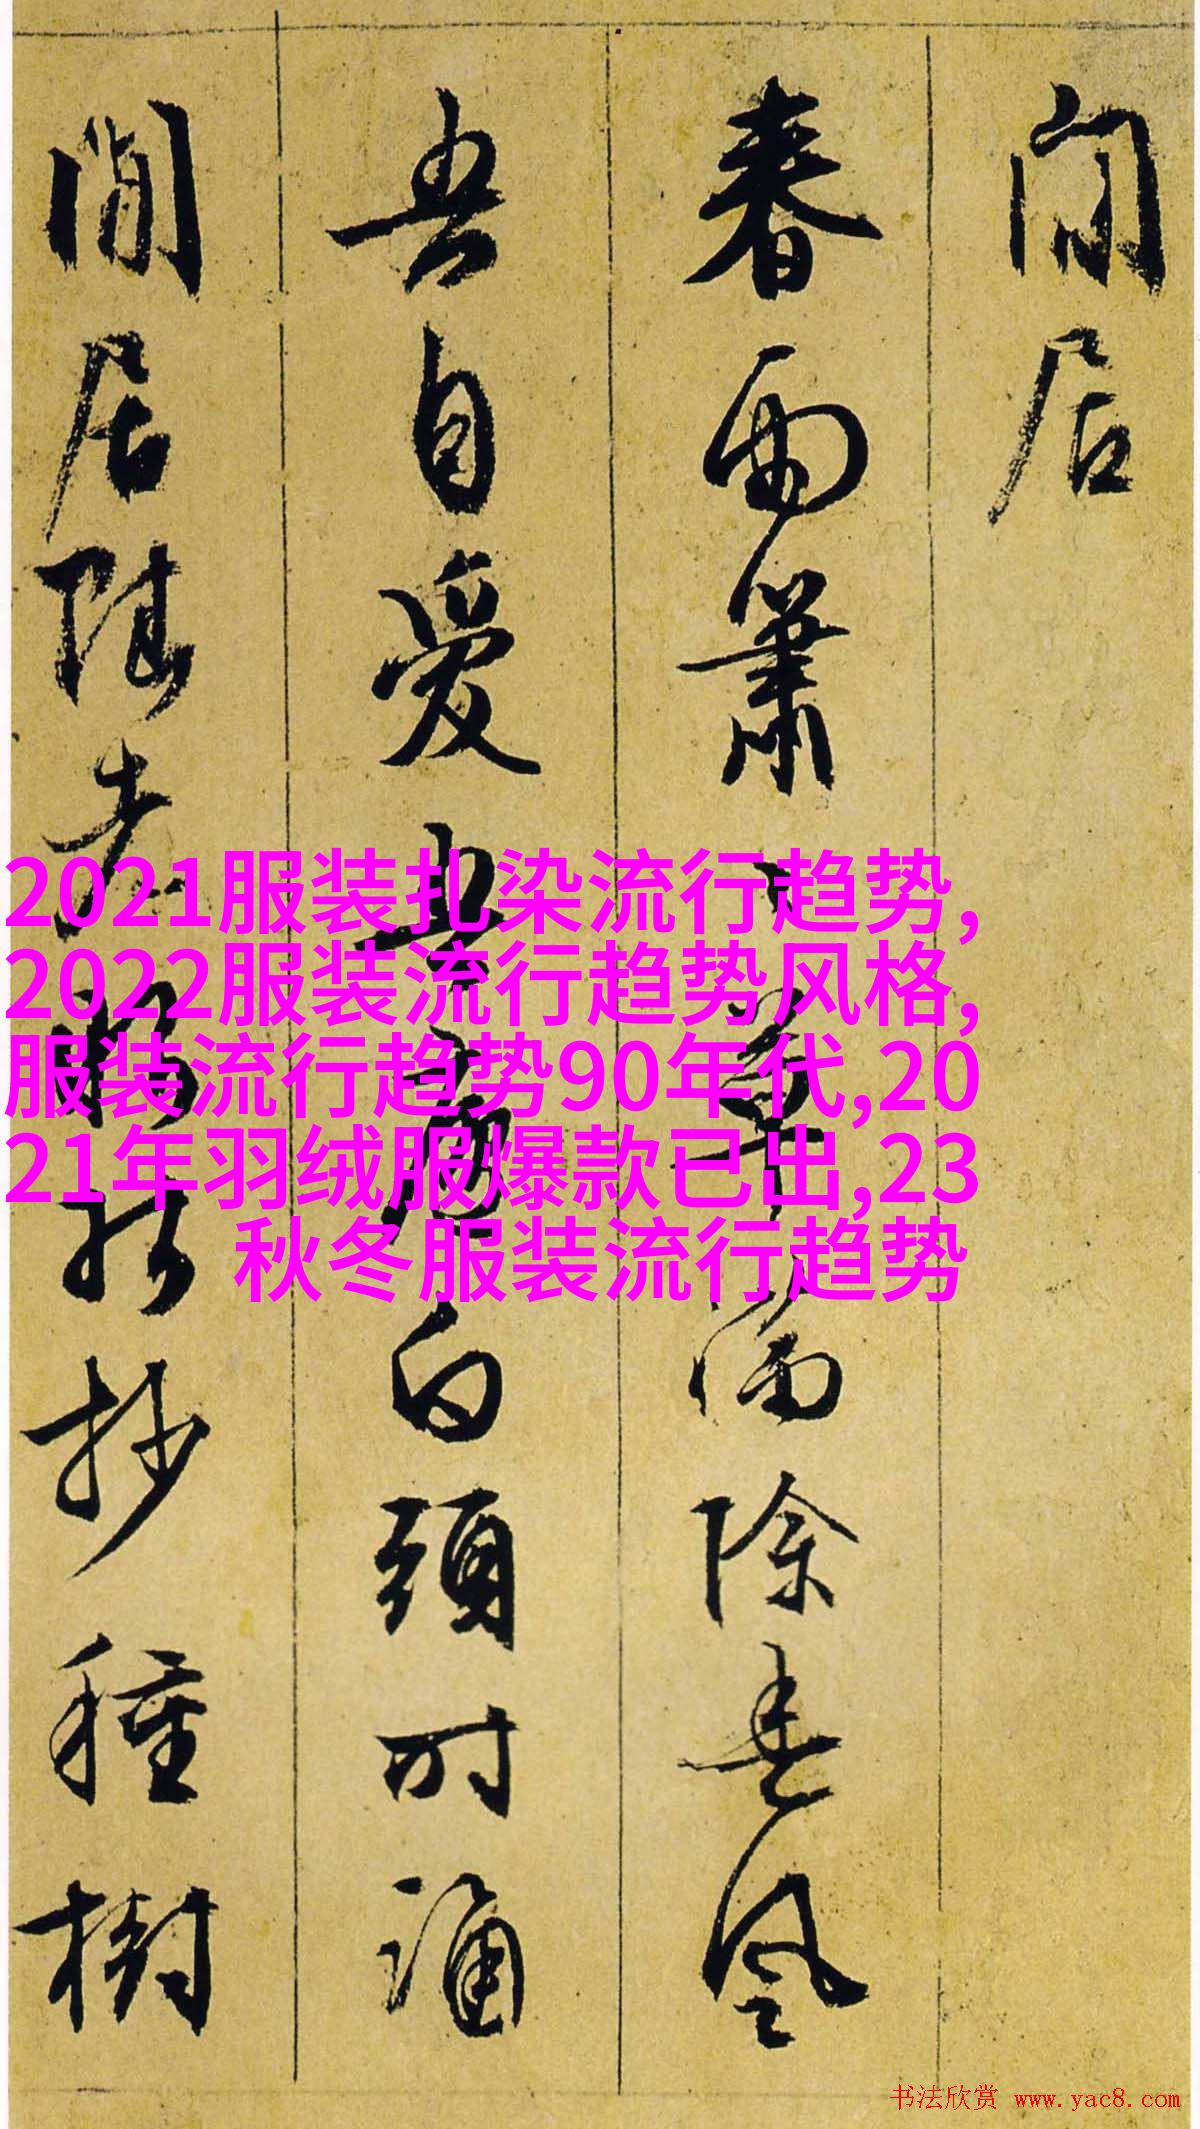 閒居
春雨蕭〻草滿除春風
吾自愛吾廬白頭時誦
閒居賦老抄種樹
2021服装扎染流行趋势,
2022服装流行趋势风格,
服装流行趋势90年代,20
21年羽绒服爆款已出,23
秋冬服装流行趋势
书法欣赏 www.yac8.com